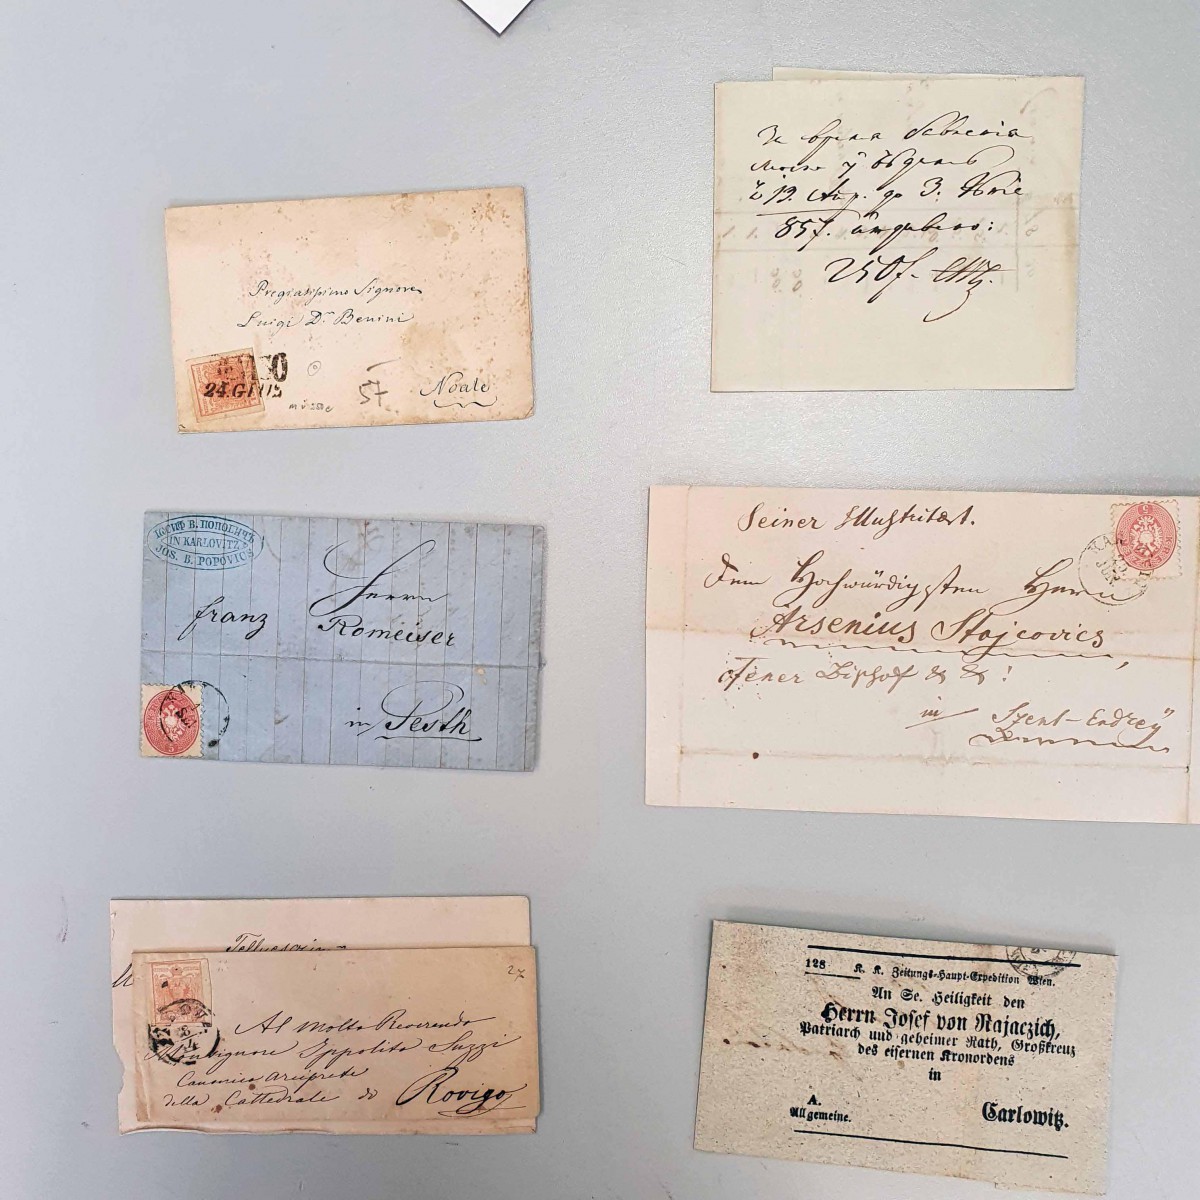 Pregiatissimo Signore
Luigi Dr. Benini
24.GIU
Noale
За време
у
13. Апр. до 3.
857.
250f.
ІОСИФ В. ПОПОВИЧЪ
IN KARLOVITZ
JOS. B. POPOVICS
Herrn
franz Romeiser
in Pesth
Seiner Illustrität.
Dem Hochwürdigsten Herrn
Arsenius Stojcovics,
Ofener Bischof & & :
in Szent-Endrey
Al Molto Reverendo
Monsignore Ippolito Suzzi
Canonico arciprete
della Cattedrale di Rovigo
128 K. K. Zeitungs-Haupt-Expedition Wien.
An Se. Heiligkeit den
Herrn Josef von Rajaczich,
Patriarch und geheimer Rath, Großkreuz
des eisernen Kronordens
in
A.
Allgemeine.
Carlowitz.